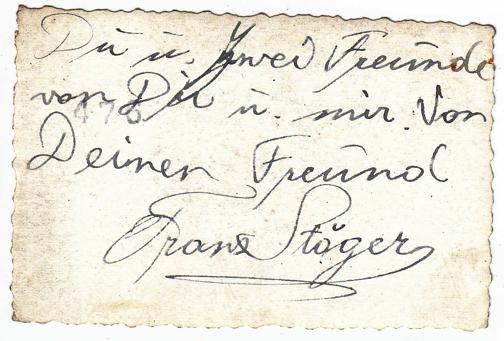 Du u. zwei Freunde
von Dir u. mir. Von
476
Deinen Freund
Franz Stöger